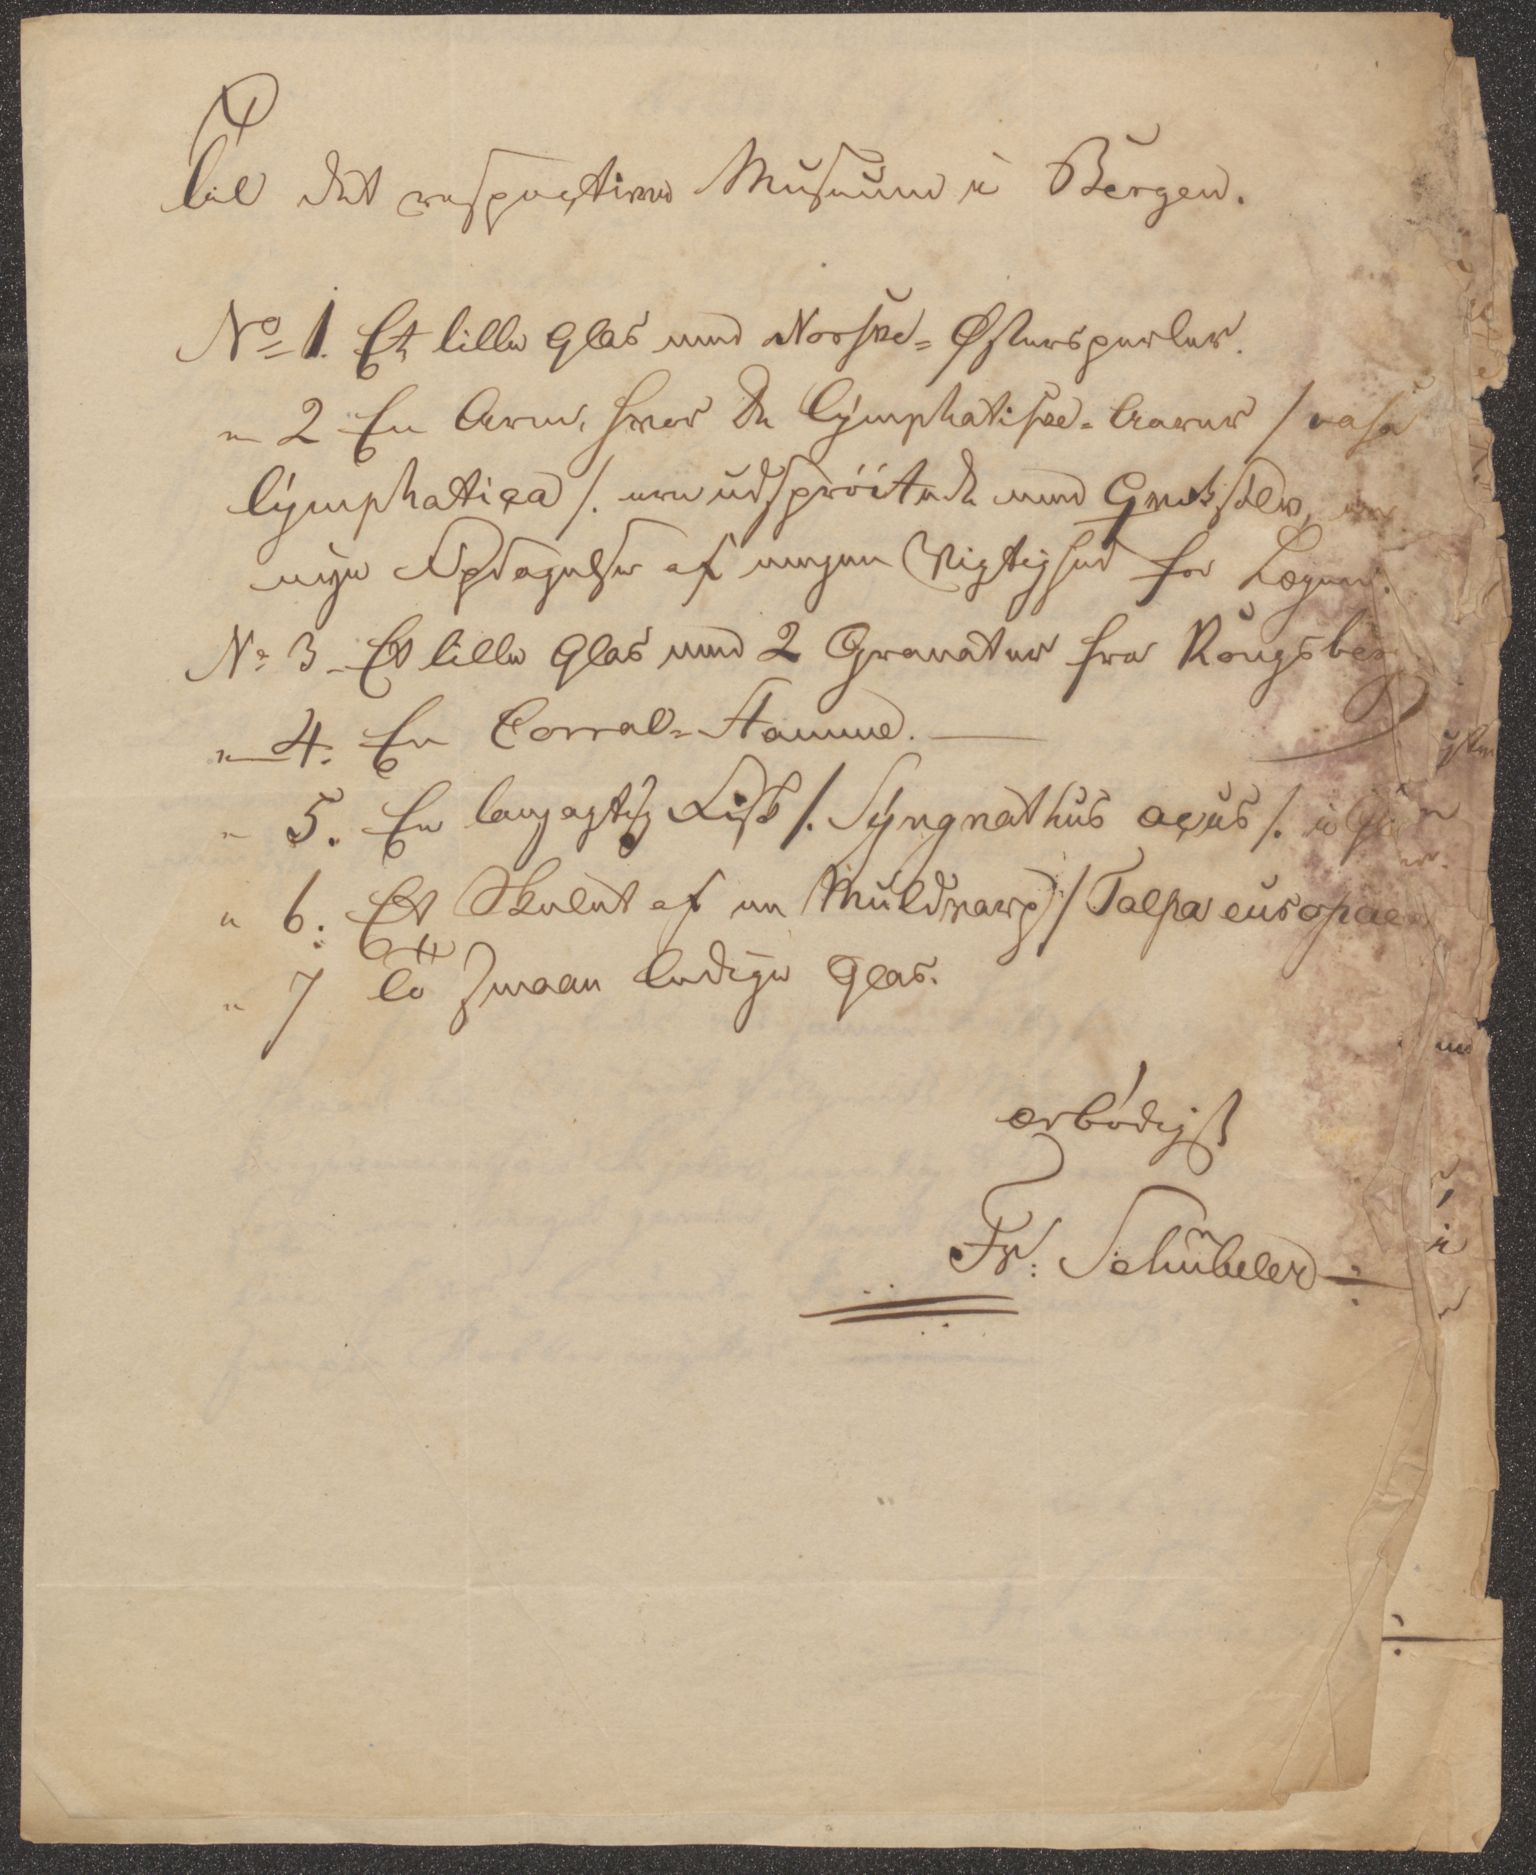 Til det respective Museum i Bergen.
No 1. Et lille Glas med Norske=Østersperler.
" 2 En Arm, hvor de lÿmphatiske=Aarer / vasa
lÿmphatica /. ere udspröitede med Qveksölv, en
nÿe Opdagelse af megen Vigtighed for Lægen.
No 3 Et lille Glas med 2 Granater fra Kongsber
" 4. En Corral=Stamme.
" 5. En langagtig Fisk /. Sÿngnathus acus /. i
" 6. Et Skelet af en Muldvarp / Talpa europaea
" 7 To smaae ledige Glas.
ærbödigst
Fr: Schübeler